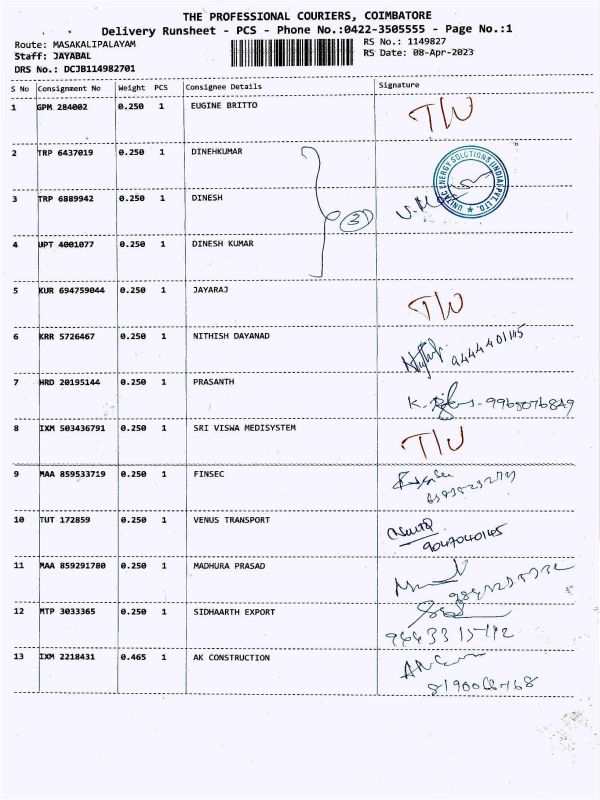 THE PROFESSIONAL COURIERS, COIMBATORE
Delivery Runsheet - PCS - Phone No.:0422-3505555 - Page No.:1
Route: MASAKALIPALAYAM
RS No.: 1149827
Staff: JAYABAL
RS Date: 08-Apr-2023
DRS No.: DCJB114982701
S No Consignment No Weight PCS Consignee Details Signature
1 GPM 284002 0.250 1 EUGINE BRITTO
2 TRP 6437019 0.250 1 DINEHKUMAR
UNITAC ENERGY SOLUTIONS (INDIA) PVT. LTD.
3 TRP 6889942 0.250 1 DINESH
3
4 UPT 4001077 0.250 1 DINESH KUMAR
5 KUR 694759044 0.250 1 JAYARAJ
6 KRR 5726467 0.250 1 NITHISH DAYANAD
7 HRD 20195144 0.250 1 PRASANTH
8 IXM 503436791 0.250 1 SRI VISWA MEDISYSTEM
9 MAA 859533719 0.250 1 FINSEC
10 TUT 172859 0.250 1 VENUS TRANSPORT
11 MAA 859291780 0.250 1 MADHURA PRASAD
12 MTP 3033365 0.250 1 SIDHAARTH EXPORT
13 IXM 2218431 0.465 1 AK CONSTRUCTION